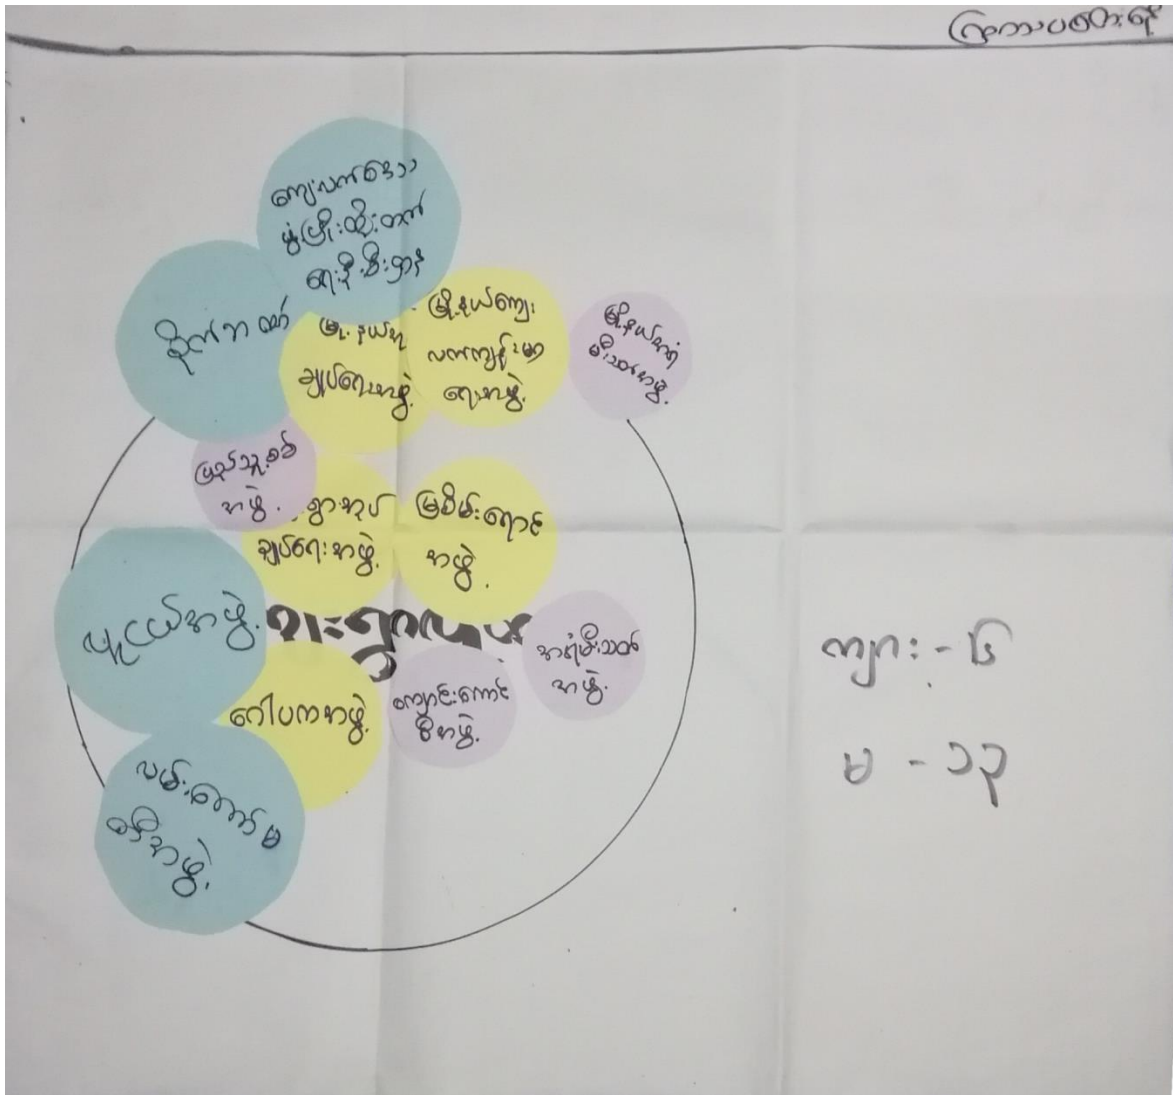 ကျေးလက်ဒေသ
ဖွံ့ဖြိုးတိုးတက်
ရေးဦးစီးဌာန
စိုက်ဘဏ်
မြို့နယ်အုပ်
ချုပ်ရေးအဖွဲ့
မြို့နယ်ကျေး
လက်ကျန်းမာ
ရေးအဖွဲ့
မြို့နယ်အရံ
မီးသတ်အဖွဲ့
ပြည်သူ့စစ်
အဖွဲ့
ရွာအုပ်
ချုပ်ရေးအဖွဲ့
မြစိမ်းရောင်
အဖွဲ့
လူငယ်အဖွဲ့
အရံမီးသတ်
အဖွဲ့
ကျောင်းကောင်
စီအဖွဲ့
ဂေါပကအဖွဲ့
လမ်းကော်မ
တီအဖွဲ့
ကျား - ၆
မ - ၁၃